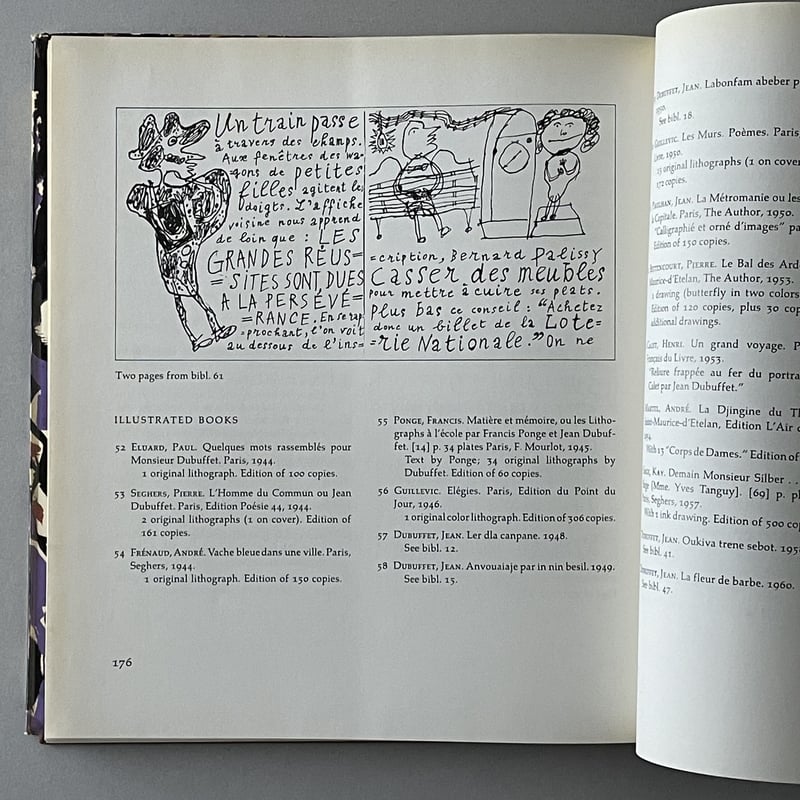 Un train passe
à travers des champs.
Aux fenêtres des wa-
gons de petites
filles agitent les
doigts. L'affiche
voisine nous apprend
de loin que : LES
GRANDES RÉUS=
=SITES SONT DUES
A LA PERSÉVÉ=
=RANCE. En se rap
=prochant, l'on voit
au dessous de l'ins=
=cription, Bernard Palissy
Casser des meubles
pour mettre à cuire ses plats.
Plus bas ce conseil : "Achetez
donc un billet de la Lote=
=rie Nationale." On ne
Two pages from bibl. 61
ILLUSTRATED BOOKS
52 Eluard, Paul. Quelques mots rassemblés pour
Monsieur Dubuffet. Paris, 1944.
1 original lithograph. Edition of 100 copies.
53 Seghers, Pierre. L'Homme du Commun ou Jean
Dubuffet. Paris, Edition Poésie 44, 1944.
2 original lithographs (1 on cover). Edition of
161 copies.
54 Frénaud, André. Vache bleue dans une ville. Paris,
Seghers, 1944.
1 original lithograph. Edition of 150 copies.
55 Ponge, Francis. Matière et mémoire, ou les Litho-
graphs à l'école par Francis Ponge et Jean Dubuf-
fet. [14] p. 34 plates Paris, F. Mourlot, 1945.
Text by Ponge; 34 original lithographs by
Dubuffet. Edition of 60 copies.
56 Guillevic. Elégies. Paris, Edition du Point du
Jour, 1946.
1 original color lithograph. Edition of 306 copies.
57 Dubuffet, Jean. Ler dla canpane. 1948.
See bibl. 12.
58 Dubuffet, Jean. Anvouaiaje par in nin besil. 1949.
See bibl. 15.
176
Dubuffet, Jean. Labonfam abeber p
1950.
See bibl. 18.
Guillevic. Les Murs. Poèmes. Paris,
1950.
15 original lithographs (1 on cover
172 copies.
Paulhan, Jean. La Métromanie ou les
Capitale. Paris, The Author, 1950.
"Calligraphié et orné d'images" pa
Edition of 150 copies.
Pierre. Le Bal des Ard
Maurice-d'Etelan, The Author, 1953.
1 drawing (butterfly in two colors
Edition of 120 copies, plus 30 cop
additional drawings.
Henri. Un grand voyage. P
Français du Livre, 1953.
"Reliure frappée au fer du portra
Calet par Jean Dubuffet."
Martel, André. La Djingine du T
Maurice-d'Etelan, Edition L'Air
With 15 "Corps de Dames." Edition of
Kay. Demain Monsieur Silber . .
[Mme. Yves Tanguy]. [69] p. p
Paris, Seghers, 1957.
With 1 ink drawing. Edition of 500 cop
Dubuffet, Jean. Oukiva trene sebot. 195
See bibl. 41.
Dubuffet, Jean. La fleur de barbe. 1960.
See bibl. 47.